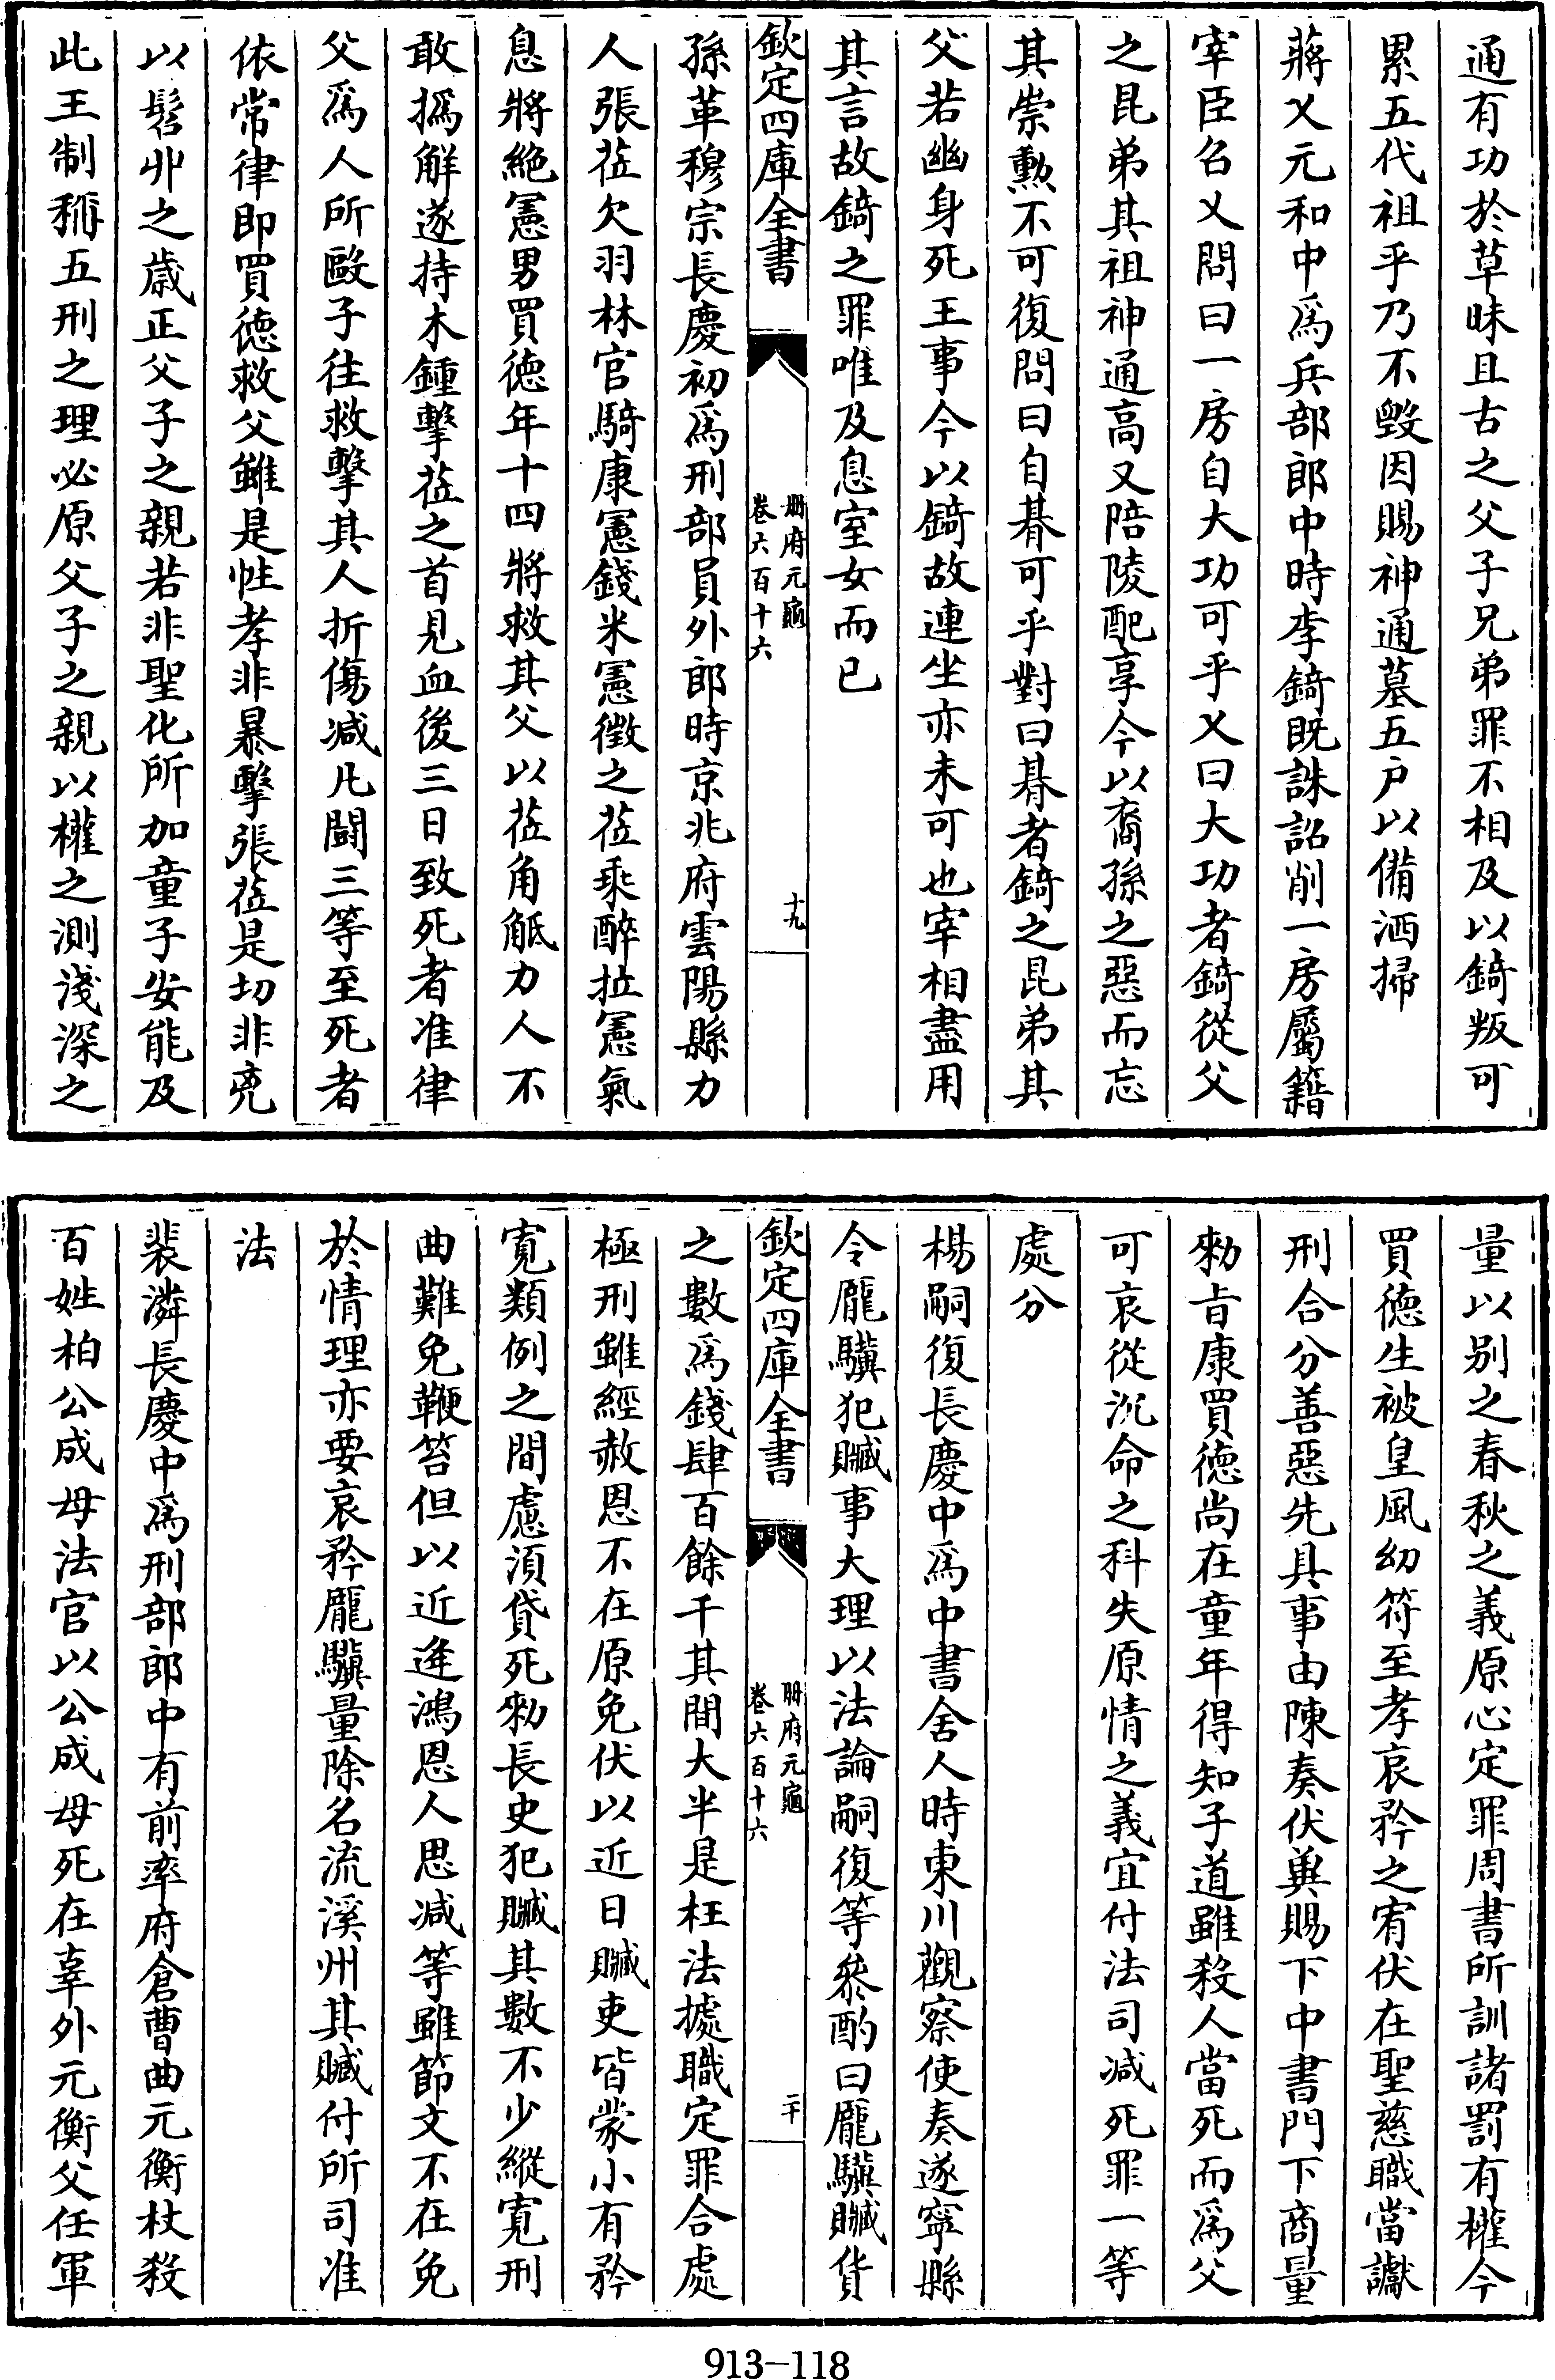 通有功於草昧且古之父子兄弟罪不相及以錡叛可
累五代祖乎乃不毀因賜神通墓五户以備洒掃
蔣乂元和中爲兵部郎中時李錡既誅詔削一房屬籍
宰臣召乂問曰一房自大功可乎乂曰大功者錡從父
之昆弟其祖神通高又陪陵配享今以裔孫之惡而忘
其崇勲不可復問曰自朞可乎對曰朞者錡之昆弟其
父若幽身死王事今以錡故連坐亦未可也宰相盡用
其言故錡之罪唯及息室女而已
欽定四庫全書
冊府元龜
卷六百十六
十九
孫革穆宗長慶初爲刑部員外郎時京兆府雲陽縣力
人張莅欠羽林官騎康憲錢米憲徵之莅乘醉拉憲氣
息將絶憲男買德年十四將救其父以莅角觝力人不
敢撝解遂持木鍾擊莅之首見血後三日致死者准律
父爲人所毆子往救擊其人折傷减凡鬭三等至死者
依常律即買德救父雖是性孝非暴擊張莅是切非兇
以髫丱之歲正父子之親若非聖化所加童子安能及
此王制稱五刑之理必原父子之親以權之測淺深之
量以别之春秋之義原心定罪周書所訓諸罰有權今
買德生被皇風幼符至孝哀矜之宥伏在聖慈職當讞
刑合分善惡先具事由陳奏伏兾賜下中書門下商量
勑旨康買德尚在童年得知子道雖殺人當死而爲父
可哀從沉命之科失原情之義宜付法司减死罪一等
處分
楊嗣復長慶中爲中書舍人時東川觀察使奏遂寧縣
令龎驥犯贓事大理以法論嗣復等叅酌曰龎驥贓貨
欽定四庫全書
冊府元龜
卷六百十六
二十
之數爲錢肆百餘千其間大半是枉法據職定罪合處
極刑雖經赦恩不在原免伏以近日贓吏皆蒙小有矜
寛類例之間慮湏貸死勑長史犯贓其數不少縱寛刑
曲難免鞭笞但以近逢鴻恩人思减等雖節文不在免
於情理亦要哀矜龎驥量除名流溪州其贓付所司准
法
裴潾長慶中爲刑部郎中有前率府倉曹曲元衡杖殺
百姓柏公成母法官以公成母死在辜外元衡父任軍
913-118